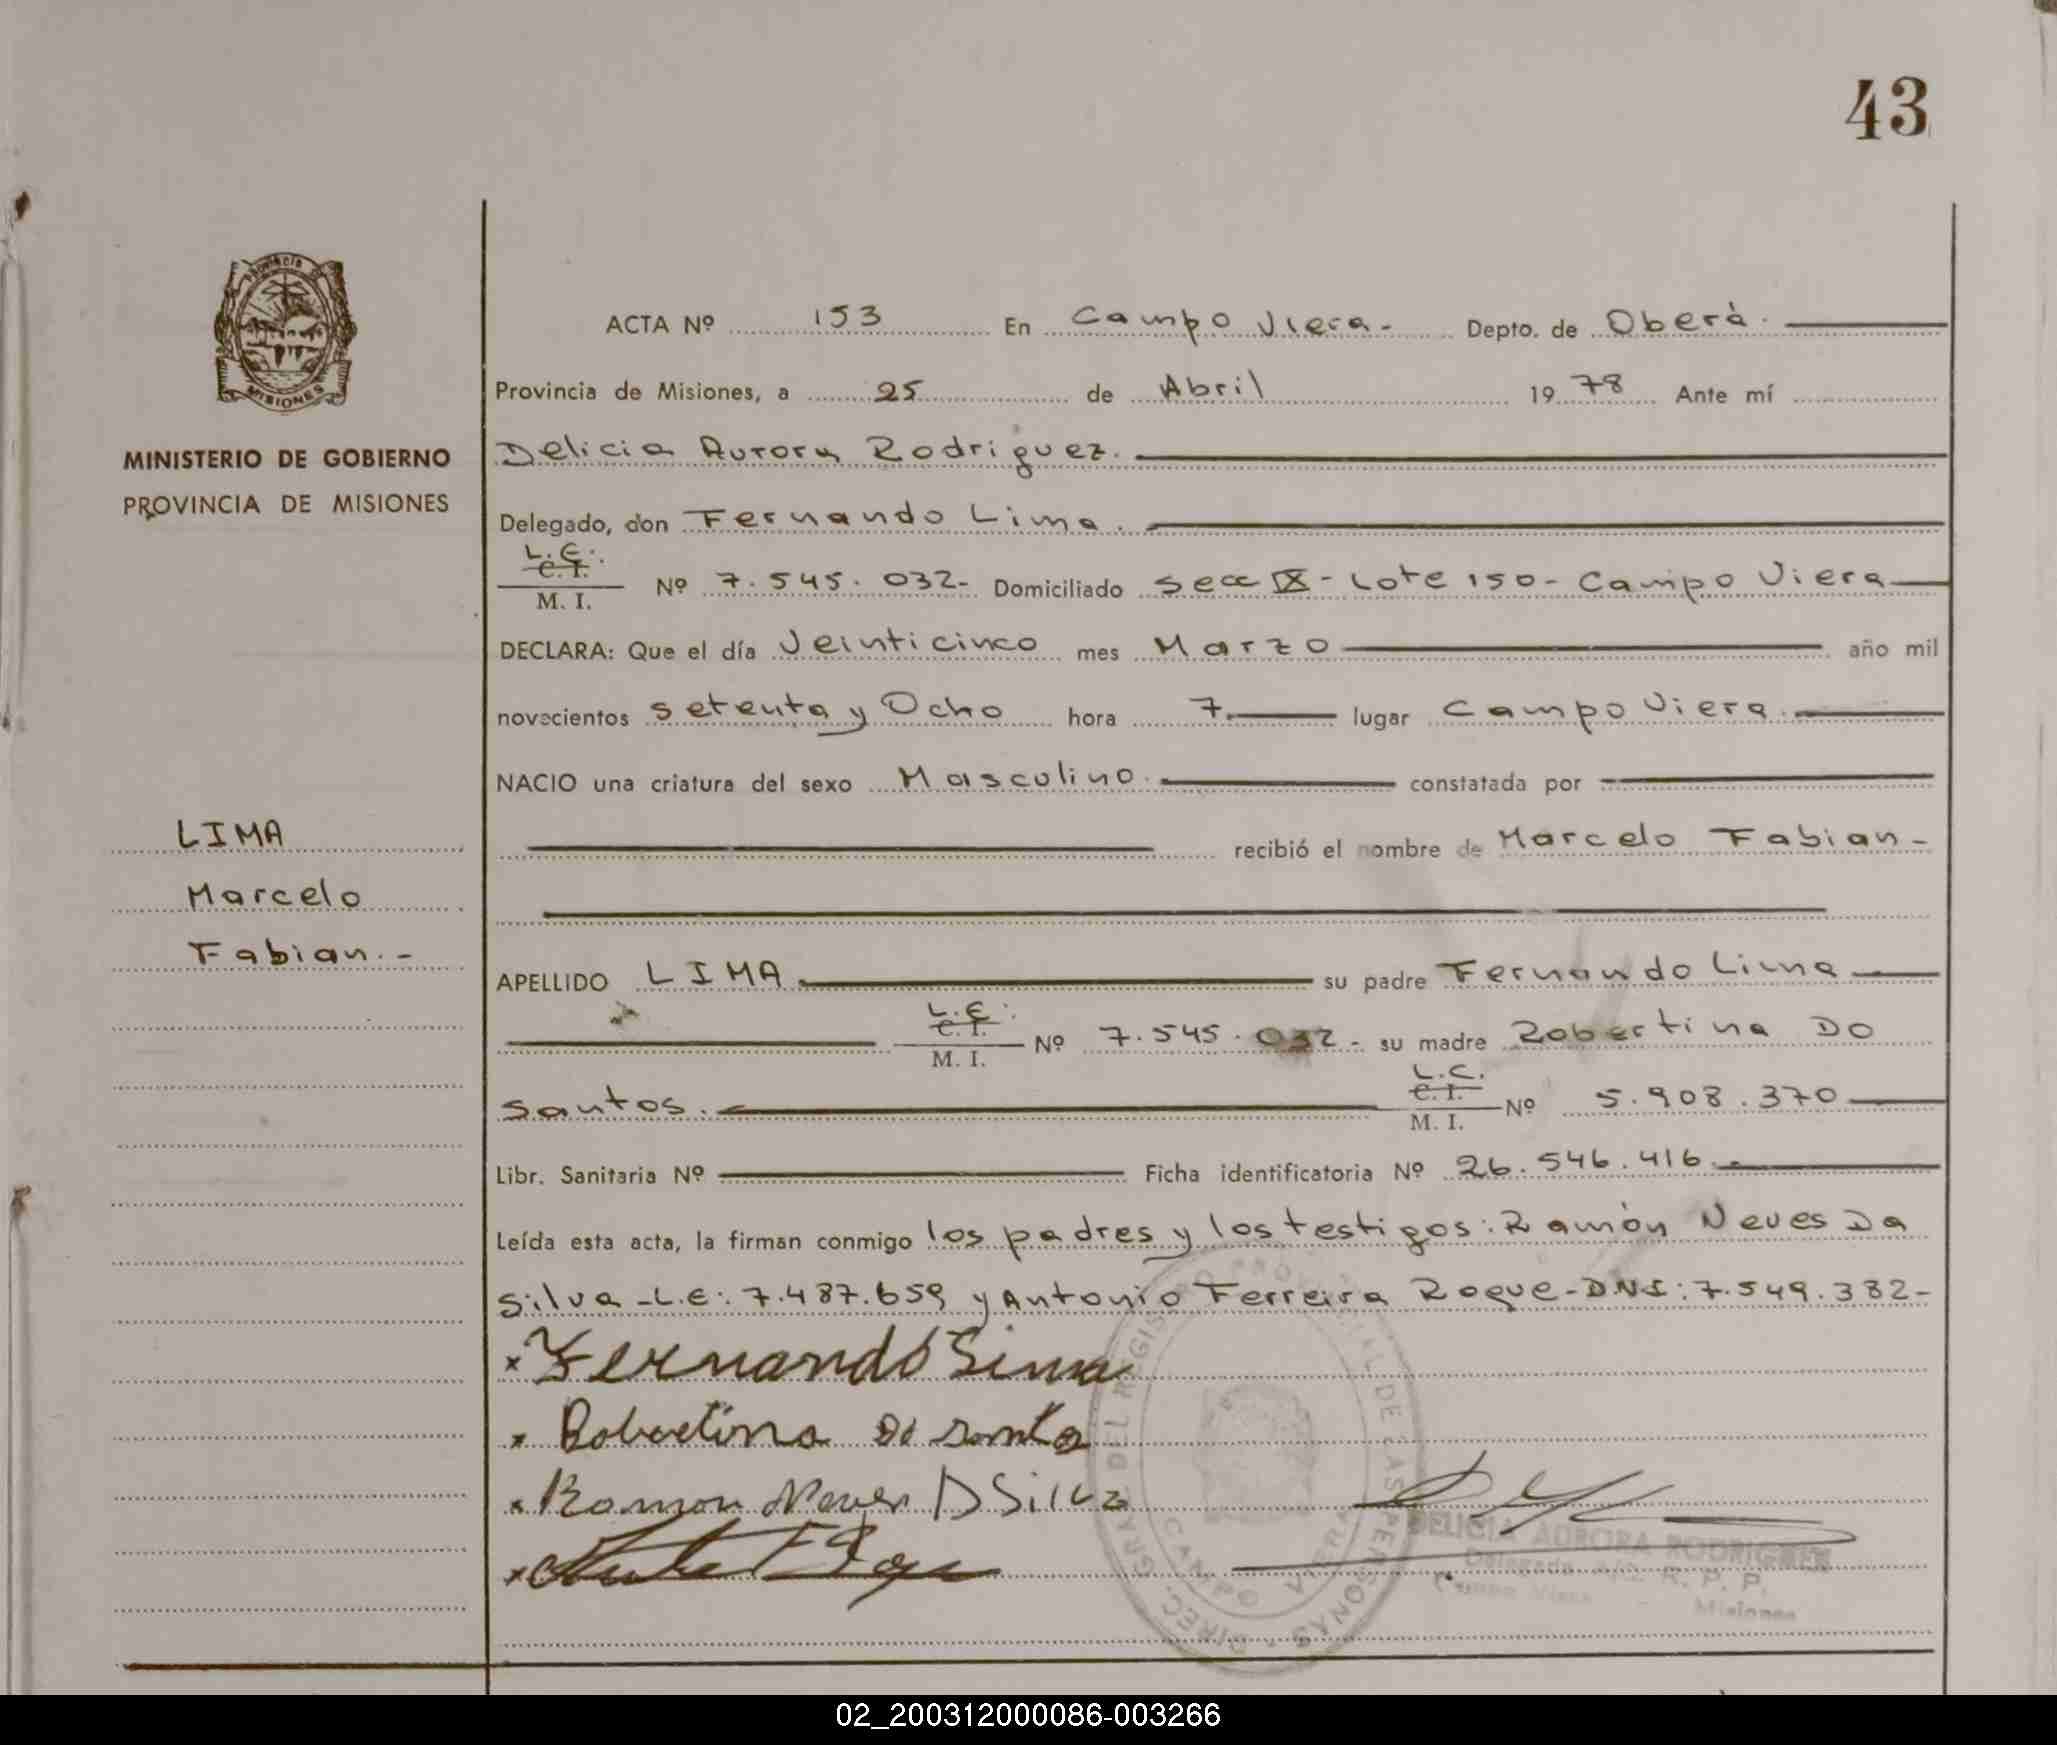 43
Provincia de
MISIONES
MINISTERIO DE GOBIERNO
PROVINCIA DE MISIONES
LIMA
Marcelo
Fabian.-
ACTA Nº 153 En Campo Viera- Depto. de Oberà.
Provincia de Misiones, a 25 de Abril 1978 Ante mí
Delicia Aurora Rodriguez.
Delegado, don Fernando Lima.
L.E.
C. I.
M. I. Nº 7.545.032- Domiciliado Secc IX - Lote 150 - Campo Viera
DECLARA: Que el día Veinticinco mes Marzo año mil
novecientos setenta y Ocho hora 7. lugar Campo Viera.
NACIO una criatura del sexo Masculino. constatada por
recibió el nombre de Marcelo Fabian-
APELLIDO LIMA su padre Fernando Lima
L.E.
C. I.
M. I. Nº 7.545.032- su madre Robertina Do
L.C.
C. I.
Santos. M. I. Nº 5.908.370
Libr. Sanitaria Nº Ficha identificatoria Nº 26.546.416.-
Leída esta acta, la firman conmigo los padres y los testigos: Ramón Neves Da
Silva -L.E: 7.487.659 y Antonio Ferreira Roque- DNI: 7.549.382-
x Fernando Lima
x Robertina do santo
x Ramon Neves D Silva
x
DIREC. GRAL. DEL REGISTRO PROVINCIAL DE LAS PERSONAS
CAMPO VIERA
DELICIA AURORA RODRIGUEZ
Delegada A/C. R. P. P.
Campo Viera - Misiones
02_200312000086-003266